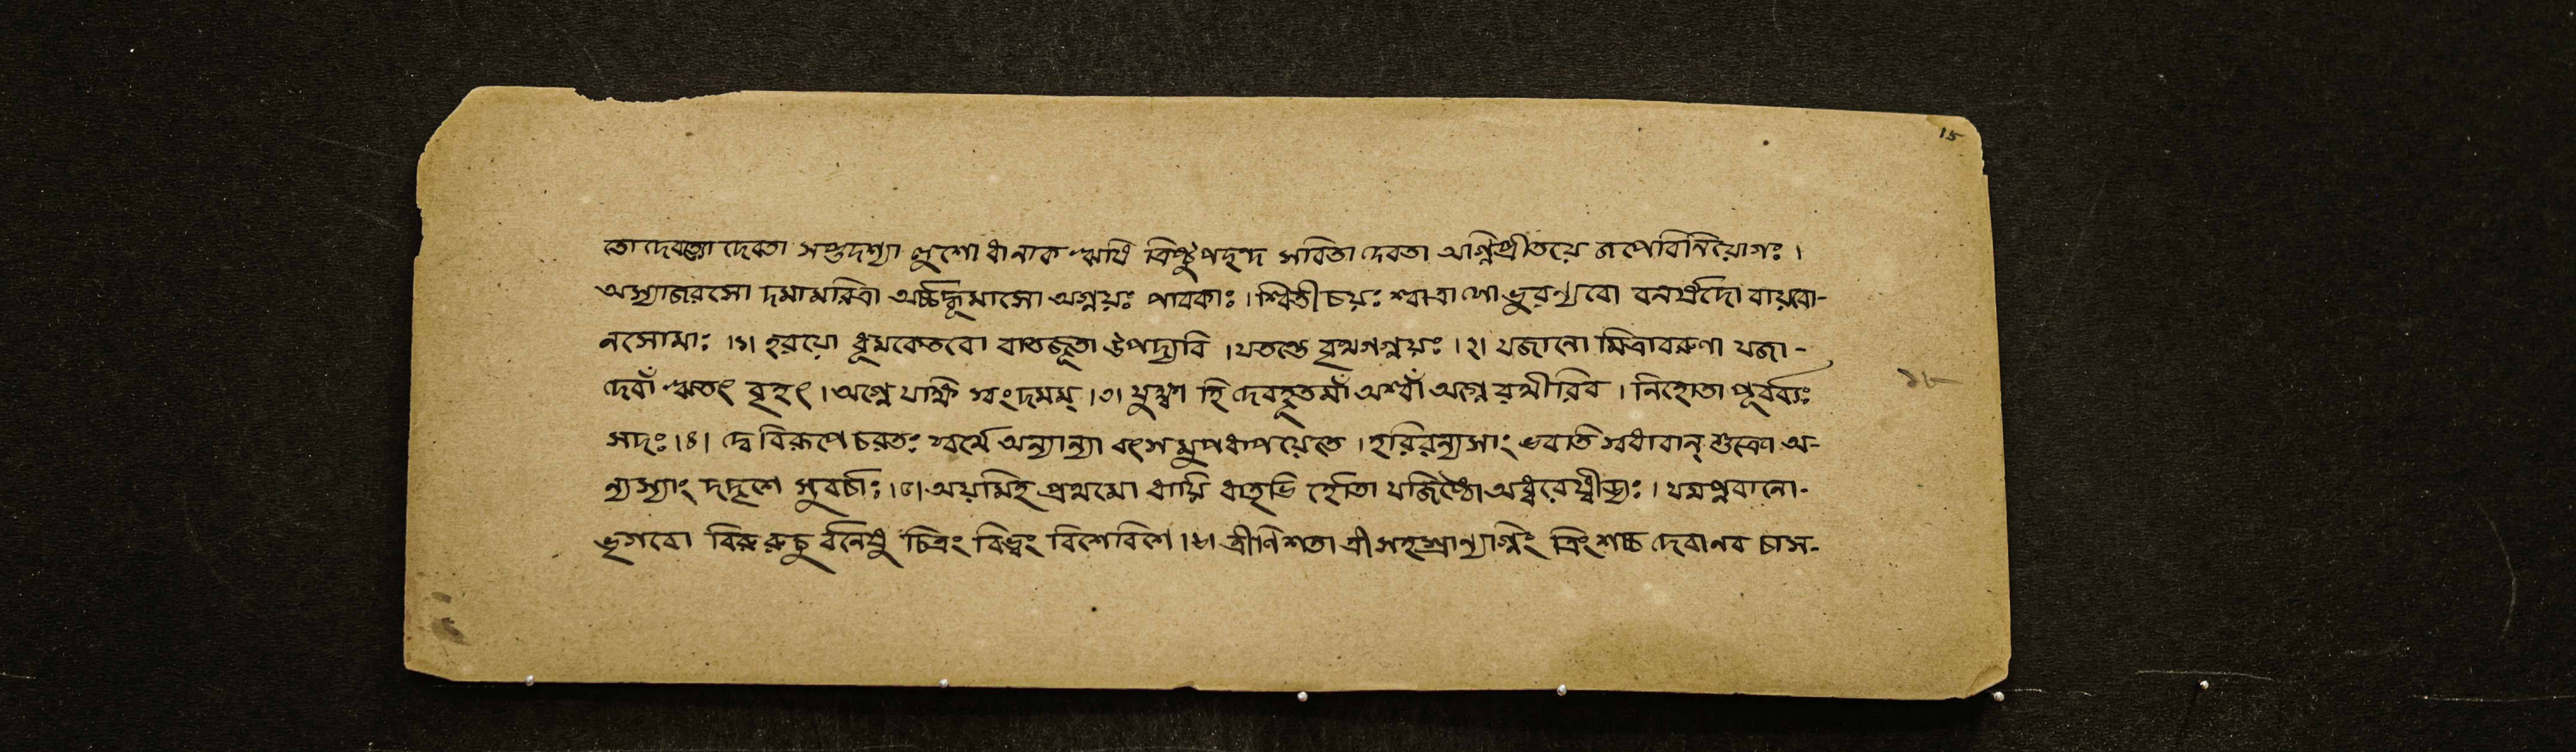 15
তো দেবত্যা দেবতা সপ্তদশ্যা লুশো ধানাক ঋষি ত্রিষ্টুপছন্দ সবিতা দেবতা অগ্নিপ্রীতয়ে জপেবিনিয়োগঃ ।
অস্যাজরসো দমামরিত্রা অর্চ্চদ্ধূমাসো অগ্নয়ঃ পাবকাঃ । শ্বিতীচয়ঃ শ্বাত্রাসো ভুরণ্যবো বনর্ষদো বায়বো-
নসোমাঃ ।১। হরয়ো ধূমকেতবো বাতজূতা উপদ্যবি । যতন্তে বৃথগগ্নয়ঃ ।২। যজানো মিত্রাবরুণা যজা-
দেবাঁ ঋতং বৃহৎ । অগ্নে যাক্ষি স্বংদমম্ ।৩। যুক্ষ্বা হি দেবহূতমাঁ অশ্বাঁ অগ্নে রথীরিব । নিহোতা পূর্ব্যঃ
সদঃ ।৪। দ্বে বিরূপে চরতঃ স্বর্থে অন্যান্যা বৎসমুপধাপয়েতে । হরিরন্যস্যাং ভবতি স্বধাবান্ শুক্রো অ-
ন্যস্যাং দদৃশে সুবর্চাঃ ।৫। অয়মিহ প্রথমো ধায়ি ধাতৃভি র্হোতা যজিষ্ঠো অধ্বরেষ্বীড্যঃ । যমপ্নবানো-
ভৃগবো বিরুরুচু র্বনেষু চিত্রং বিভ্বং বিশেবিশে ।৬। ত্রীণিশতা ত্রীসহস্রান্যাগ্নিং ত্রিংশচ্চ দেবানব চাস-